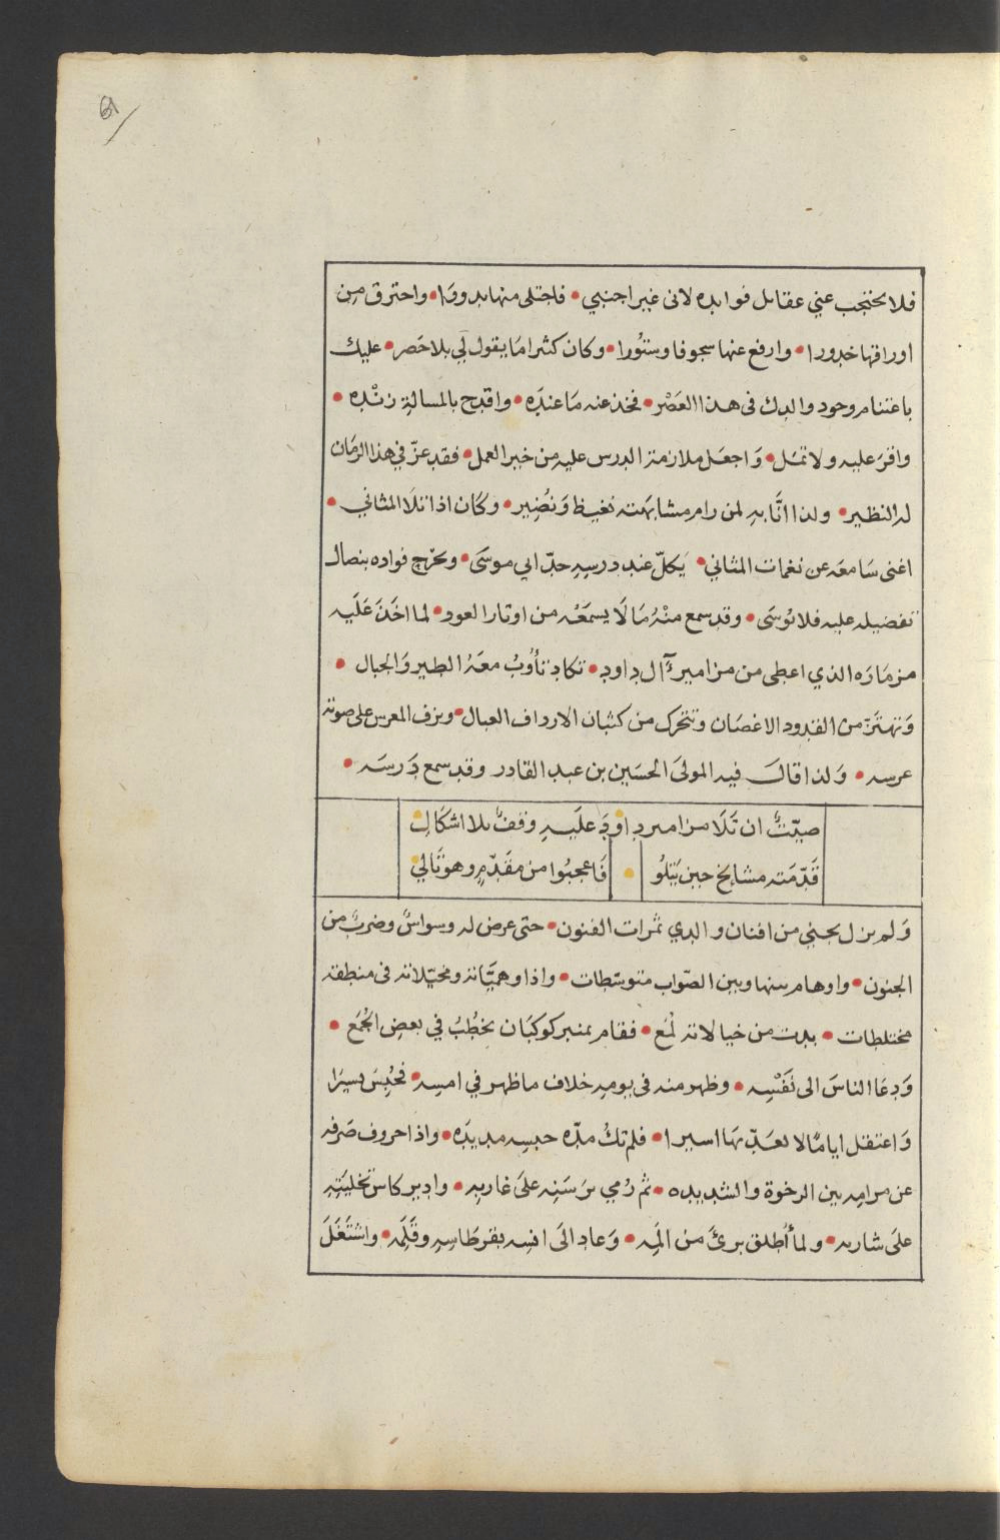 61
فلا تحتجب عني عقايل فوايده لانى غير اجنبي • فاجتلى منها بدورا • واخترق من
اوراقها خدورا • وارفع عنها سجوفا وستُورا • وكان كثيرا مَا يقول لَي بلا حَصر • عليك
باغتنام وجود والدك فى هذا العَصْر • فخذ عنه مَا عندَه • واقدح بالمسالة زنْده •
واقرَ عليه ولا تمَل • وَاجعَل ملازمة الدرس عليه من خير العمل • فقد عزّ في هذا الزمَان
له النظير • ولذا انَّا به لمن رام مشابهَته نغيظ وَنُضِير • وكَان اذا تلَا المثاني •
اغنى سَامعَه عن نغمات المثاني • يَكلّ عند درسِه حدّ ابي موسَى • ويخرج فواده بنصال
تفضيله عليه فلا يُوسَى • وقد سمع منْهُ مَا لَا يسمَعُه من اوتار العود • لما اخَذ عَلَيه
مزمَارَه الذي اعطى من مزامير آل داود • تكاد تأوبُ معَهُ الطير وَالجبال •
وَتهتَزّ من القدود الاغصَان وتتحرك من كثبان الارداف العبال • ويزف المعرس على صوته
عرسه • وَلذا قالَ فيه المولىَ الحسَين بن عبد القادر وقد سمع دَرسَه •
صيّتٌ ان تَلَا مزامير داودَ عليه وقفٌ بلا اشكَالِ
قَدّمَته مشايخ حين يَتلُو • فَاعجبُوا من مقَدّمٍ وهو تَالي
وَلم يزل يجني من افنان والدي ثمرات الفنون • حتى عرض له وسواسٌ وضربٌ من
الجنون • واوهام بينها وبين الصّواب متوسّطات • واذا وهميَّاته ومخيّلاته فى منطقه
مختلطات • بدت من خيالاته لُمَع • فقام بمنبر كوكبَان يخطُبُ في بعض الجُمَع •
وَدعَا الناسَ الى نَفْسِه • وظهر منه فى يومه خلاف ما ظهر في امسه • فحُبِسَ يسيرًا
وَاعتقل ايامًا لا يعَدّ بهَا اسيرا • فلم تكُ مدّه حبسِه مديدَه • واذا حروف صَرفه
عن مرامه بين الرخوة والشديده • ثم رُمي برَسَنِه علىَ غاربه • وادير كاس تخليَتِه
علىَ شاربه • ولما أُطلق برئَ من المَه • وَعاد الَى انسِه بقرطَاسِه وقَلَمه • واشتَغَلَ